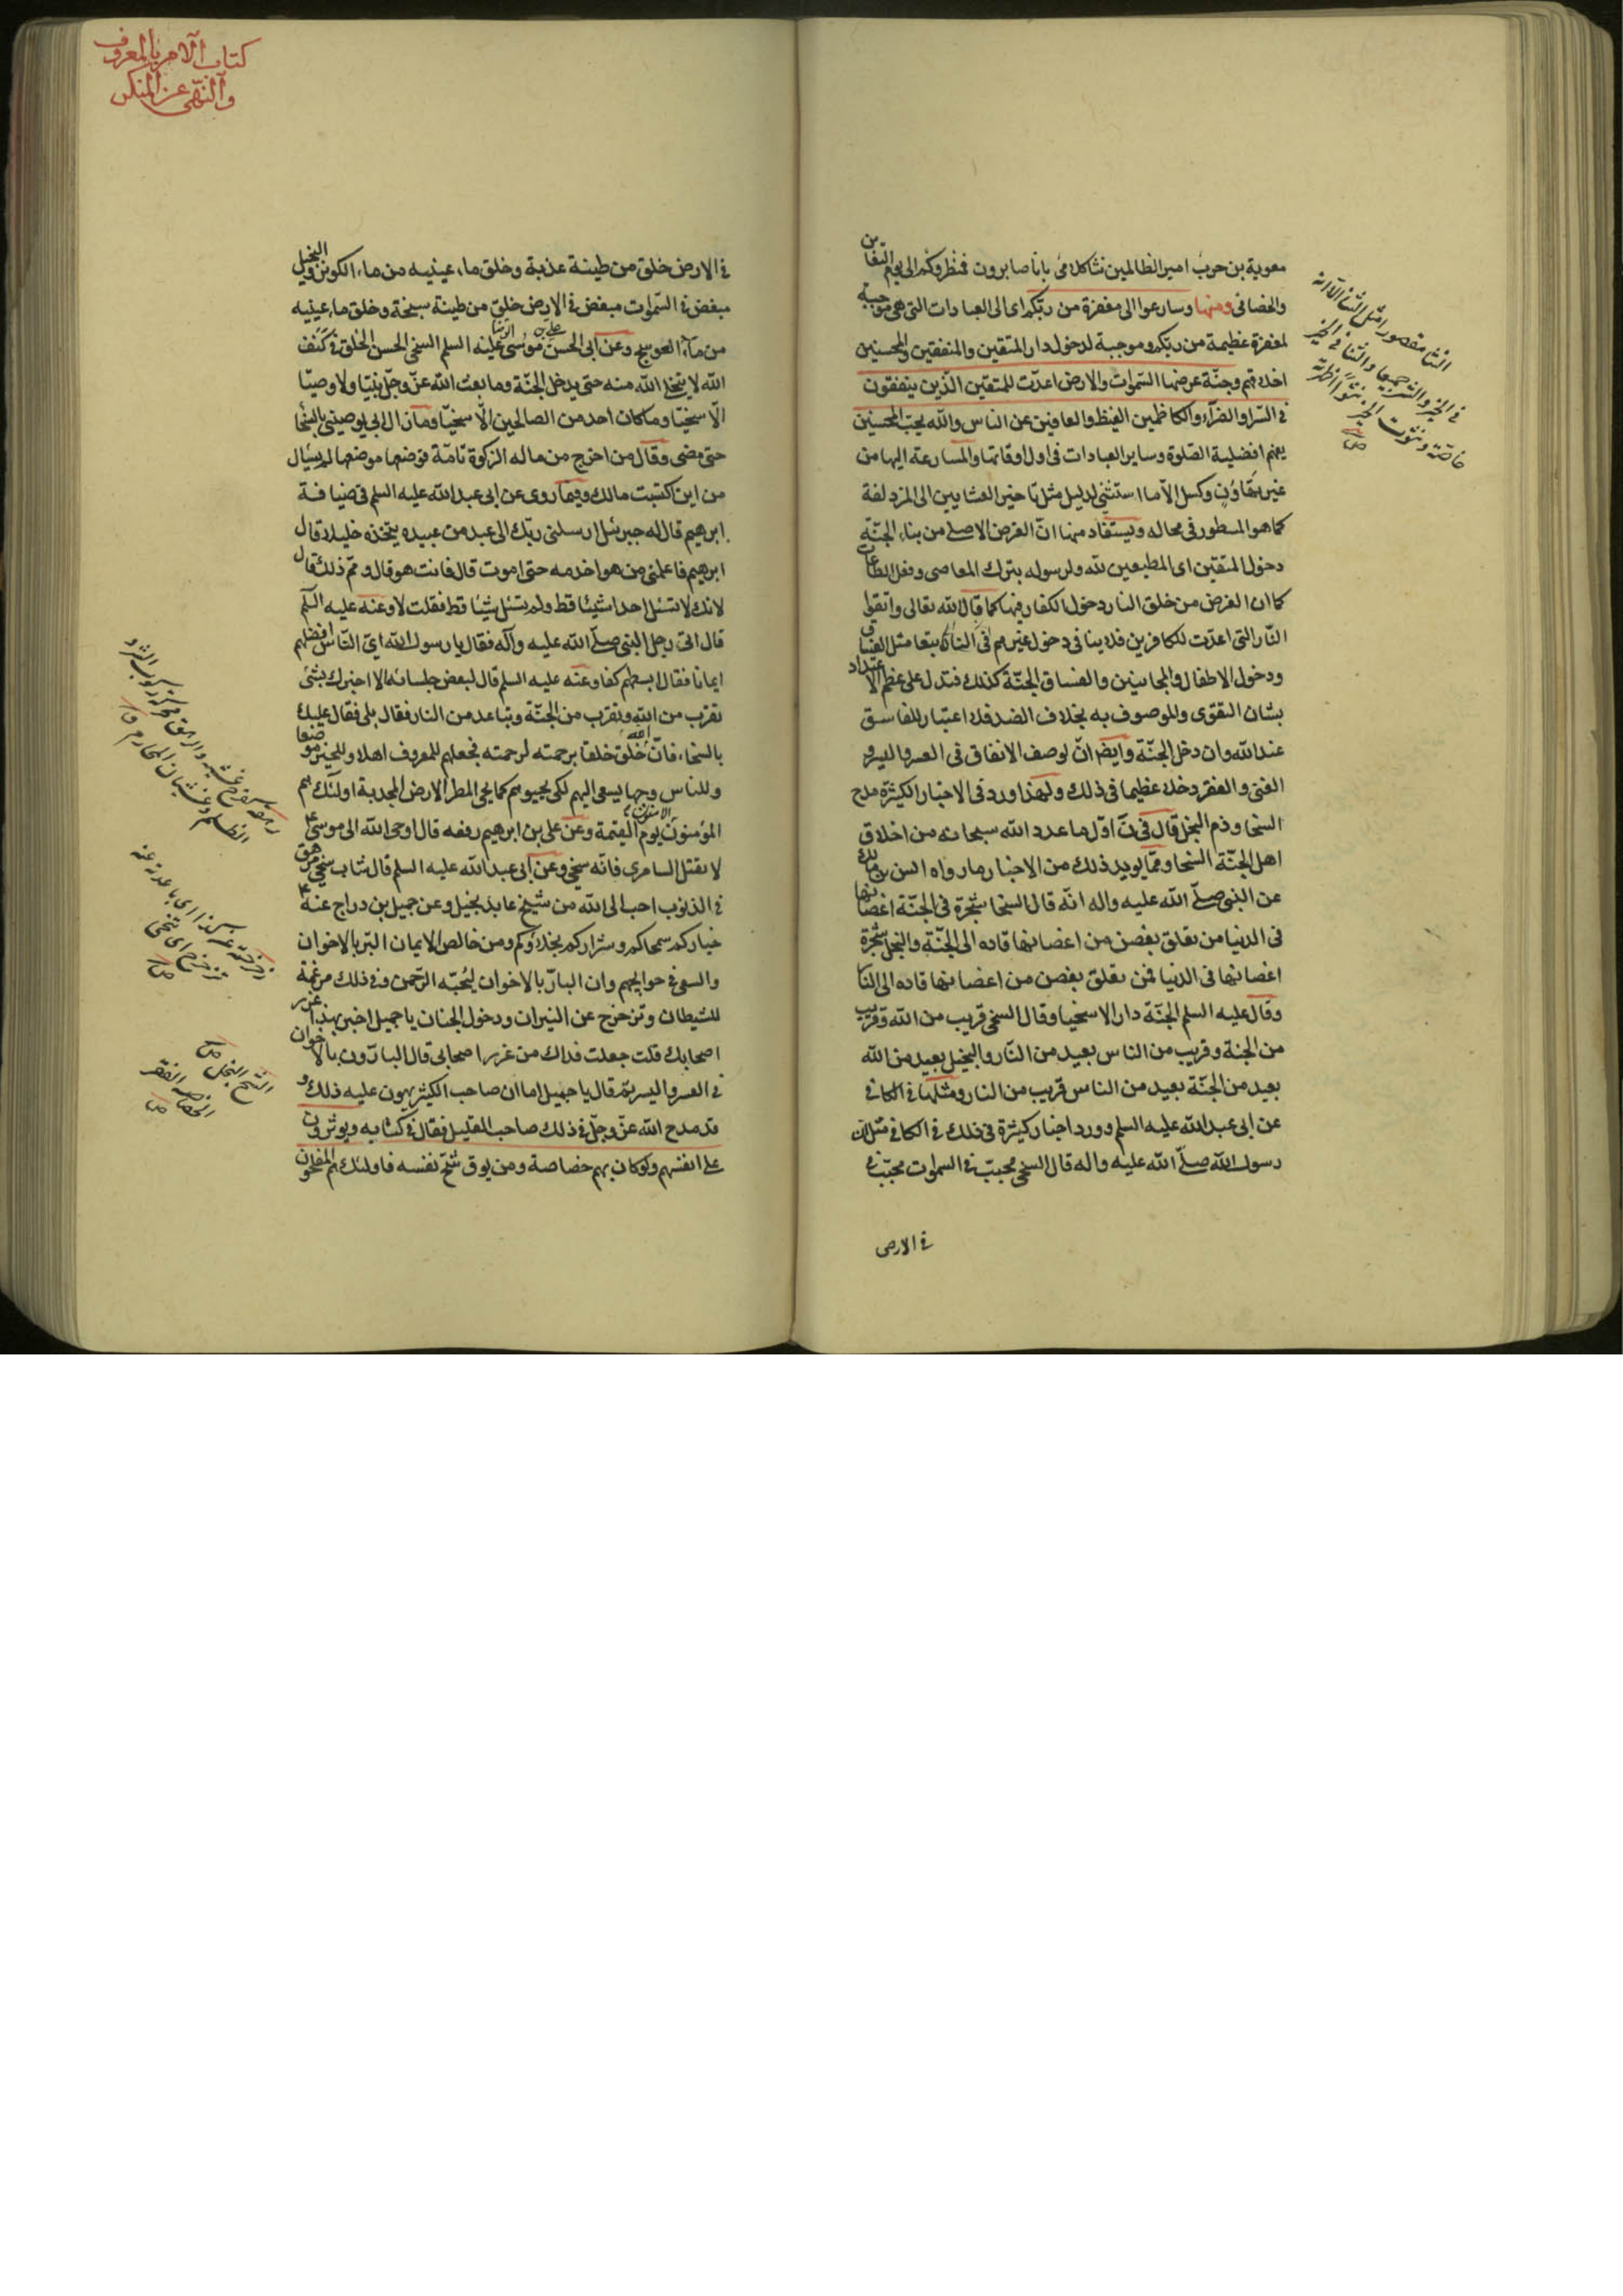 معوية بن حرب امير الظالمين نشاكلامى بانا صابرون فنظروكم الى يوم التغابن
والخصائى ومنها وسارعوا الى مغفرة من ربكم اى الى العبادات التى هى موجبة
لمغفرة عظيمة من ربكم وموجبة لدخول دار المتقين والمنفقين والمحسنين
اخلاقهم وجنّة عرضها السّموات والارض اعدّت للمتقين الّذين ينفقون
فى السّرا والضرّاء والكاظمين الغيظ والعافين عن الناس والله يحبّ المحسنين
يفهم افضلية الصّلوة وساير العبادات فى اول اوقاتها والمسارعة اليها من
غير تهاون وكسل الّا ما استثنى لدليل مثل تاخير العشايين الى المزدلفة
كما هو المسطور فى محاله ويستفاد منها انّ الغرض الاصلى من بناء الجنّة
دخول المتقين اى المطيعين لله ولرسوله بترك المعاصى وفعل الطاعات
كما ان الغرض من خلق النار دخول الكفار فيها كما قال الله تعالى واتقوا
النّار التى اعدّت للكافرين فلا ينافى دخول غيرهم فى النار تبعا مثل الفساق
ودخول الاطفال والمجانين والفساق الجنّة كذلك فتدل على عظم الاعتداد
بشان التقوى والموصوف به بخلاف الضد فلا اعتبار للفاسق
عند الله وان دخل الجنّة وايضا انّ لوصف الانفاق فى العسر واليسر
الغنى والفقر دخلا عظيما فى ذلك ولهذا ورد فى الاخبار الكثيرة مدح
السخا وذم البخل قال فى ن اوّل ما عدد الله سبحانه من اخلاق
اهل الجنّة السخا وممّا يويد ذلك من الاخبار ما رواه انس بن مالك
عن النبى صلّى الله عليه واله انّه قال السخا شجرة فى الجنّة اغصانها
فى الدنيا من تعلق بغصن من اغصانها قاده الى الجنّة والبخل شجرة
اغصانها فى الدنيا فمن تعلق بغصن من اغصانها قاده الى النا
وقال عليه السلم الجنّة دار الاسخيا وقال السخى قريب من الله وقريب
من الجنة وقريب من الناس بعيد من النّار والبخيل بعيد من الله
بعيد من الجنّة بعيد من الناس قريب من النار ومثلها فى الكافى
عن ابى عبد الله عليه السلم وورد اخبار كثيرة فى ذلك فى الكافى مثل ان
رسول الله صلّى الله عليه واله قال السخى محبّب فى السموات محبّب فى
فى الارض
النثا مقصور امثل الثنا الّا انه
فى الخير والشر جميعا والثنا فى الخير
خاصّة ونثوت الخبر نثوا اظهرته
ص
كتاب الامر بالمعروف
والنّهى عن المنكر
فى الارض خلق من طينة عذبة وخلق ماء عينيه من ماء الكوثر والبخيل
مبغض فى السّموات مبغض فى الارض خلق من طينة سبخة وخلق ماء عينيه
من ماء العوسج وعن ابى الحسن على بن موسى الرضا عليه السلم السخى الحسن الخلق فى كنف
الله لا يتخلى الله منه حتى يدخل الجنّة وما بعث الله عزّ وجلّ نبيّا ولا وصيّا
الّا سخيّا وما كان احد من الصالحين الّا سخيّا وما زال ابى يوصينى بالسّخا
حتى مضى وقال من اخرج من ماله الزكوة تامّة فوضعها موضعها لم يسال
من اين اكتسبت مالك وفيما روى عن ابى عبد الله عليه السلم فى ضيافة
ابرهيم قال له جبرئيل ارسلنى ربّك الى عبد من عبيده يتخذه خليلا قال
ابرهيم فاعلمنى من هو اخدمه حتى اموت قال فانت هو قال ومم ذلك قال
لانك لا تسئل احدا شيئا قط ولم تسئل شيئا قط فقلت لا وعنه عليه السّلم
قال اتى رجل النبى صلّى الله عليه وآله فقال يا رسول الله اىّ النّاس افضلهم
ايمانا فقال ابسطهم كفا وعنه عليه السلم قال لبعض جلسائه الا اخبرك بشئ
تقرّب من الله وتقرب من الجنّة وتباعد من النار فقال بلى فقال عليك
بالسخاء فانّ الله خلق خلقا برحمته لرحمته فجعلهم للمعروف اهلا وللخير موضعا
وللناس وجها يسعى اليهم لكى يحيوهم كما يحى المطر الارض المجدبة اولئك هم
المؤمنون الآمنون يوم القيمة وعن على بن ابرهيم رفعه قال اوحى الله الى موسى ع
لا تقتل السامرى فانّه سخى وعن ابى عبد الله عليه السلم قال شاب سخى مرهق
فى الذنوب احب الى الله من شيخ عابد بخيل وعن جميل بن دراج عنه ع
خياركم سمحاكم وشراركم بخلاؤكم ومن خالص الايمان البرّ بالاخوان
والسعى فى حوايجهم وان البارّ بالاخوان ليحبّه الرّحمن وفى ذلك مرغمة
للشيطان وتزحزح عن النيران ودخول الجنان يا جميل اخبر بهذا غرر
اصحابك قلت جعلت فداك من غرر اصحابى قال البارّون بالاخوان
فى العسر واليسر ثم قال يا جميل اما ان صاحب الكثير يهون عليه ذلك و
قد مدح الله عزّ وجلّ فى ذلك صاحب القليل فقال فى كتابه ويوثرون
على انفسهم ولو كان بهم خصاصة ومن يوق شحّ نفسه فاولئك هم المفلحون
الظلم وغشيان المحارم ق
زحزحته عن كذا اى باعدته عنه
فتزحزح اى تنحّى
ص
الشح البخل ص
الخصاصة الفقر
ص